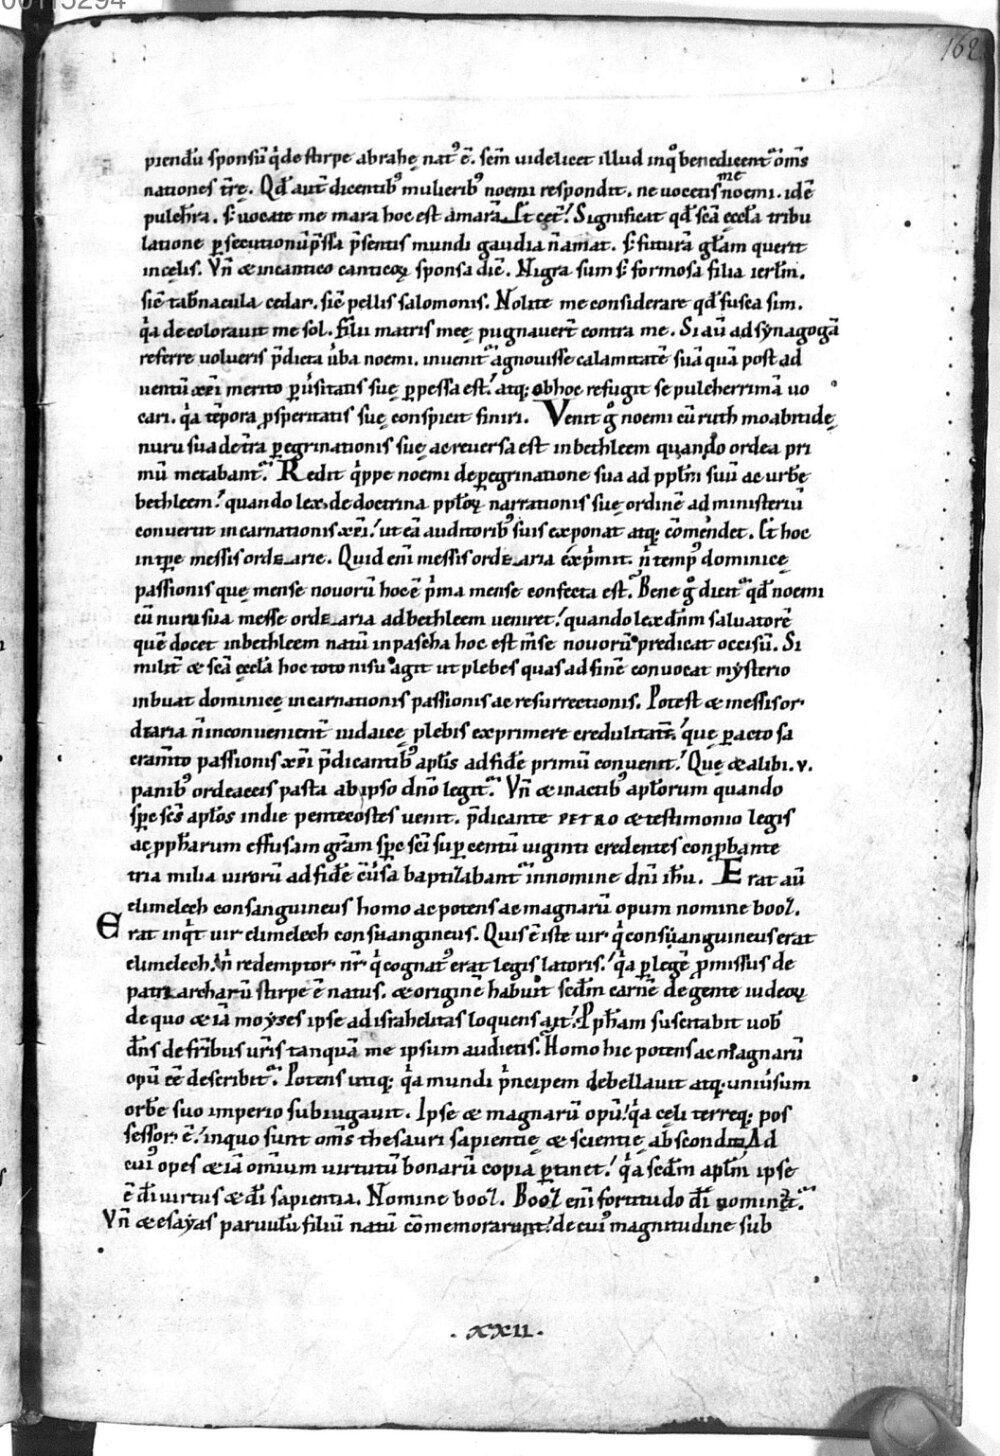 00115294
162
piendū sponsū q̇de stirpe abrahę nat᾽ ē. sem̄ uidelicet illud inq᾽ benedicent᷑ om̄s
nationes t̄rę. Qd̄ aut̄ dicentib᾽ mulierib᾽ noemi respondit. ne uocetis me noemi. idē
pulch̄ra. s; uocate me mara hoc est amarā. Et cet᷑. Significat qd̄ scā ęccl̄a tribu
latione ꝑsecutionū p̄ssa p̄sentis mundi gaudia n̄ amat. s; futurā gl̄am querit
in cęlis. Vn̄ & in cantico canticoꝝ sponsa dic̄. Nigra sum s; formosa filia ierl̄m.
sic̄ tab̄nacula cedar. sic̄ pellis salomonis. Nolite me considerare qd̄ fusca sim.
q̇a decolorauit me sol. filii matris meę pugnauer̄t contra me. Si aū ad synagogā
referre uolueris p̄dicta ūba noemi. inuenit᷑ agnouisse calamitatē suā quā post ad
uentū xp̄i merito ꝑuersitatis suę perpessa est. atq; ob hoc refugit se pulcherrimā uo
cari. q̇a tēpora ꝓsperitatis suę conspicit finiri. Venit g᾽ noemi cū ruth moabitide
nuru sua de t̄ra peregrinationis suę ac reuersa est in bethleem quando ordea pri
mū metebant᷑. Redit q̇ppe noemi de peregrinatione sua ad ppl̄m suū ac urbē
bethleem. quando lex de doctrina ppl̄oꝝ narrationis suę ordinē ad ministeriū
conuertit incarnationis xp̄i. ut eā auditorib᾽ suis exponat atq; cōmendet. Et hoc
in tp̄re messis ordearię. Quid eni messis ordearia exp̄mit. n̄ temp᾽ dominicę
passionis quę mense nouorū hoc ē p̄ma mense confecta est. Bene g᾽ dicit᷑ qd̄ noemi
cū nuru sua messe ordearia ad bethleem ueniret. quando lex dn̄m saluatorē
quē docet in bethleem natū in pascha hoc est m̄se nouorū predicat occisū. Si
milit̄ & scā ęccl̄a hoc toto nisu agit ut plebes quas ad finē conuocat mysterio
inbuat dominicę incarnationis passionis ac resurrectionis. Potest & messis or
dearia n̄ inconuenient̄ iudaicę plebis exprimere credulitatē. quę peracto sa
cram̄to passionis xp̄i p̄dicantib᾽ apl̄is ad fidē primū conuenit. Quę & alibi .v.
panib᾽ ordeaceis pasta ab ipso dn̄o legit᷑. Vn̄ & in actib᾽ apl̄orum quando
sp̄c sc̄s apl̄os in die pentecostes uenit. p̄dicante PETRO & testimonio legis
ac ꝓph̄arum effusam gr̄am sp̄c sc̄i super centū uiginti credentes conꝓbante
tria milia uirorū ad fidē c̄uersa baptizabant᷑ in nomine dn̄i ih̄u. Erat aū
elimelech consanguineus homo ac potens ac magnarū opum nomine booz.
Erat inq̇t uir elimelech consanguineus. Quis ē iste uir q̇ consanguineus erat
elimelech. n̄ redemptor nr̄ q̇ cognat᾽ erat legislatoris. q̇a per legē ꝓmissus de
patriarcharū stirpe ē natus. & originē habuit secd̄m carnē de gente iudeoꝝ
de quo & iā moyses ipse ad israhelitas loquens ait. Pph̄am suscitabit uob᾽
dn̄s de fr̄ibus ur̄is tanquā me ipsum audietis. Homo hic potens ac magnarū
opū ēē describit᷑. Potens utiq; q̇a mundi p̄ncipem debellauit atq; uniuersum
orbē suo imperio subiugauit. Ipse & magnarū opū. q̇a cęli terreq; pos
sessor ē. in quo sunt om̄s thesauri sapientię & scientię absconditi. Ad
cui᾽ opes & iā omnium uirtutū bonarū copia pertinet. q̇a secd̄m apl̄m ipse
ē d̄i uirtus & d̄i sapientia. Nomine booz. Booz eni fortitudo d̄i nominat᷑.
Vn̄ & esayas paruulū filiū natū cōmemorarunt. de cui᾽ magnitudine sub
.xxii.